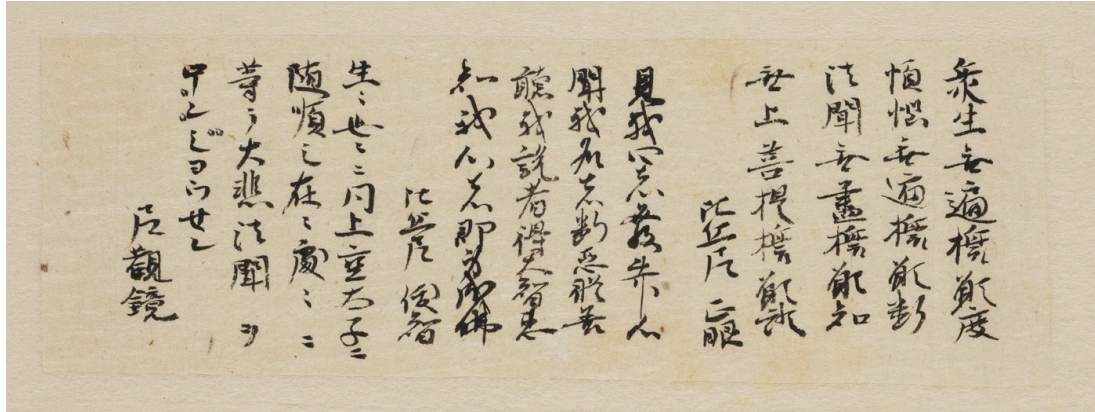 衆生無邊誓願度
煩惱無邊誓願断
法聞無盡誓願知
無上菩提誓願證
比丘尼 正眼
見我身者發菩提心
聞我名者断惡修善
聴我説者得大智恵
知我心者即身成佛
比丘尼 俊智
生〻世〻ニ同上宮太子ニ
随順シ在〻處〻ニ
等ク大悲法聞ヲ
尼觀鏡